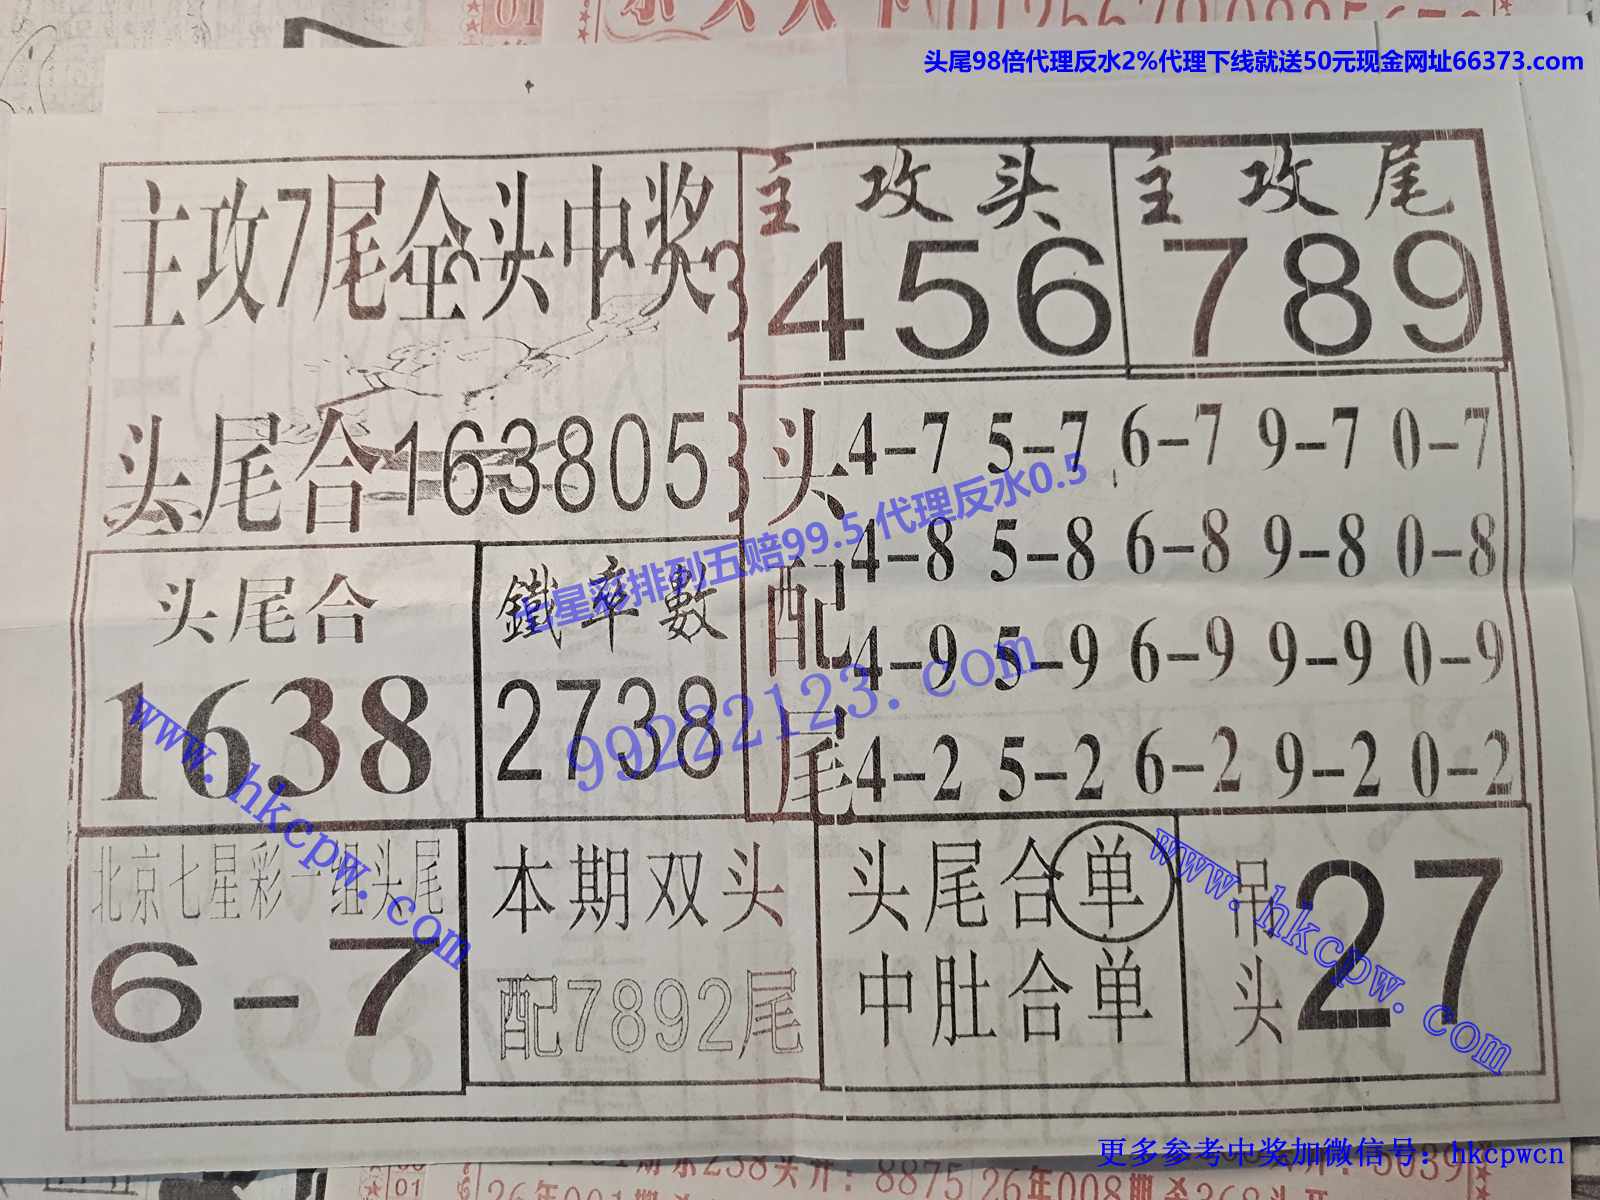 头尾98倍代理反水2%代理下线就送50元现金网址66373.com
主攻7尾全头中奖
主攻头
456
主攻尾
789
头尾合163805
头配尾
4-7 5-7 6-7 9-7 0-7
4-8 5-8 6-8 9-8 0-8
4-9 5-9 6-9 9-9 0-9
4-2 5-2 6-2 9-2 0-2
七星彩排列五赔99.5 代理反水0.5
99222123.com
头尾合
1638
鐵率數
2738
www.hkcpw.com
北京七星彩一组头尾
6-7
本期双头
配7892尾
头尾合单
中肚合单
吊头
27
www.hkcpw.com
更多参考中奖加微信号:hkcpwcn